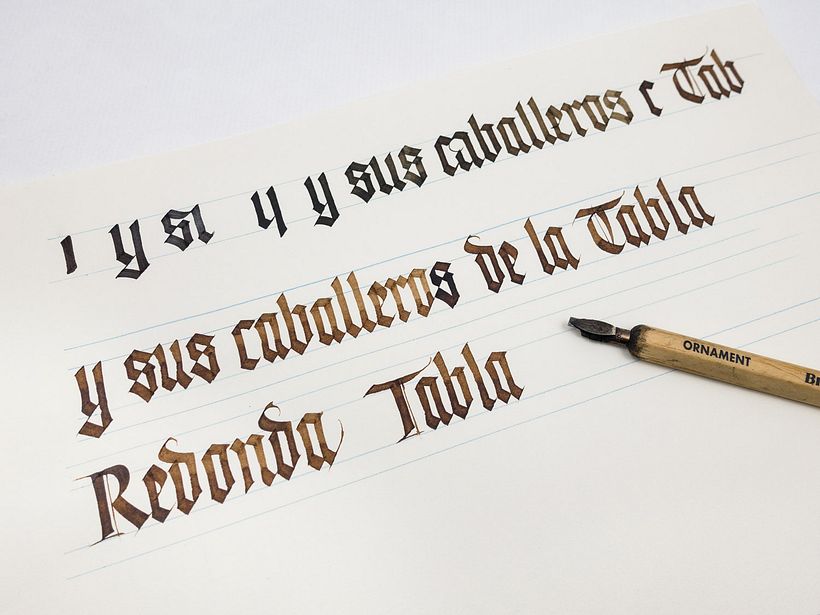 ı y sı y y sus caballeros c Tab
y sus caballeros de la Tabla
Redonda Tabla
ORNAMENT